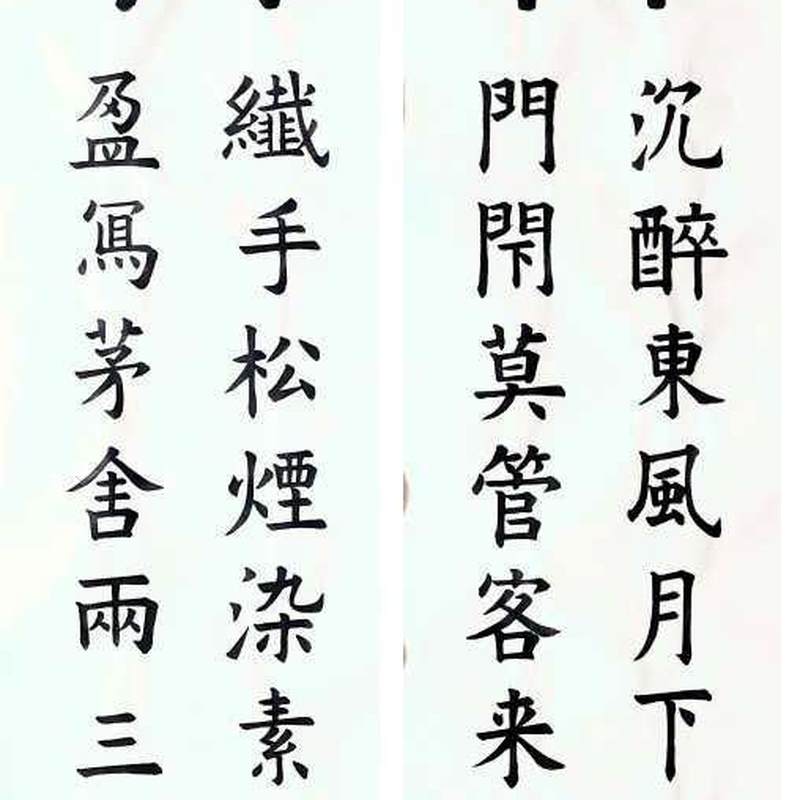 沉醉東風月下
門閇莫管客来
纎手松煙染素
盈寫茅舍兩三